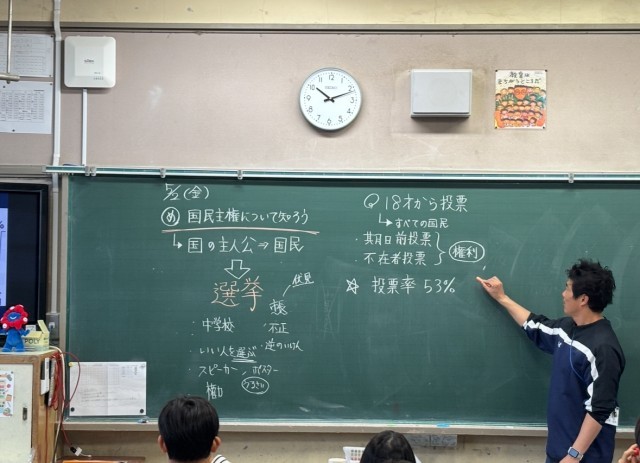 5/2(金)
め 国民主権について知ろう
↳ 国の主人公⇒国民
選挙
・中学校
・いい人を選ぶ
・スピーカー
・ポスター
うるさい
権力
不正
Q 18才から投票
↳すべての国民
・期日前投票
・不在者投票
権利
☆ 投票率 53%
SEIKO
教室は
まちがうところだ